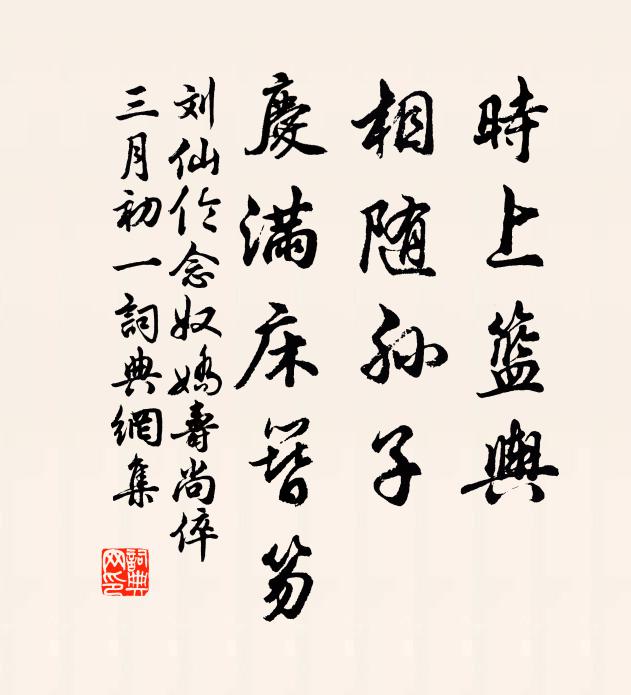 時上籃輿
相随孙子
慶滿床簪笏
刘仙伦念奴嬌壽尚倅
三月初一詞典網集
詞典网印